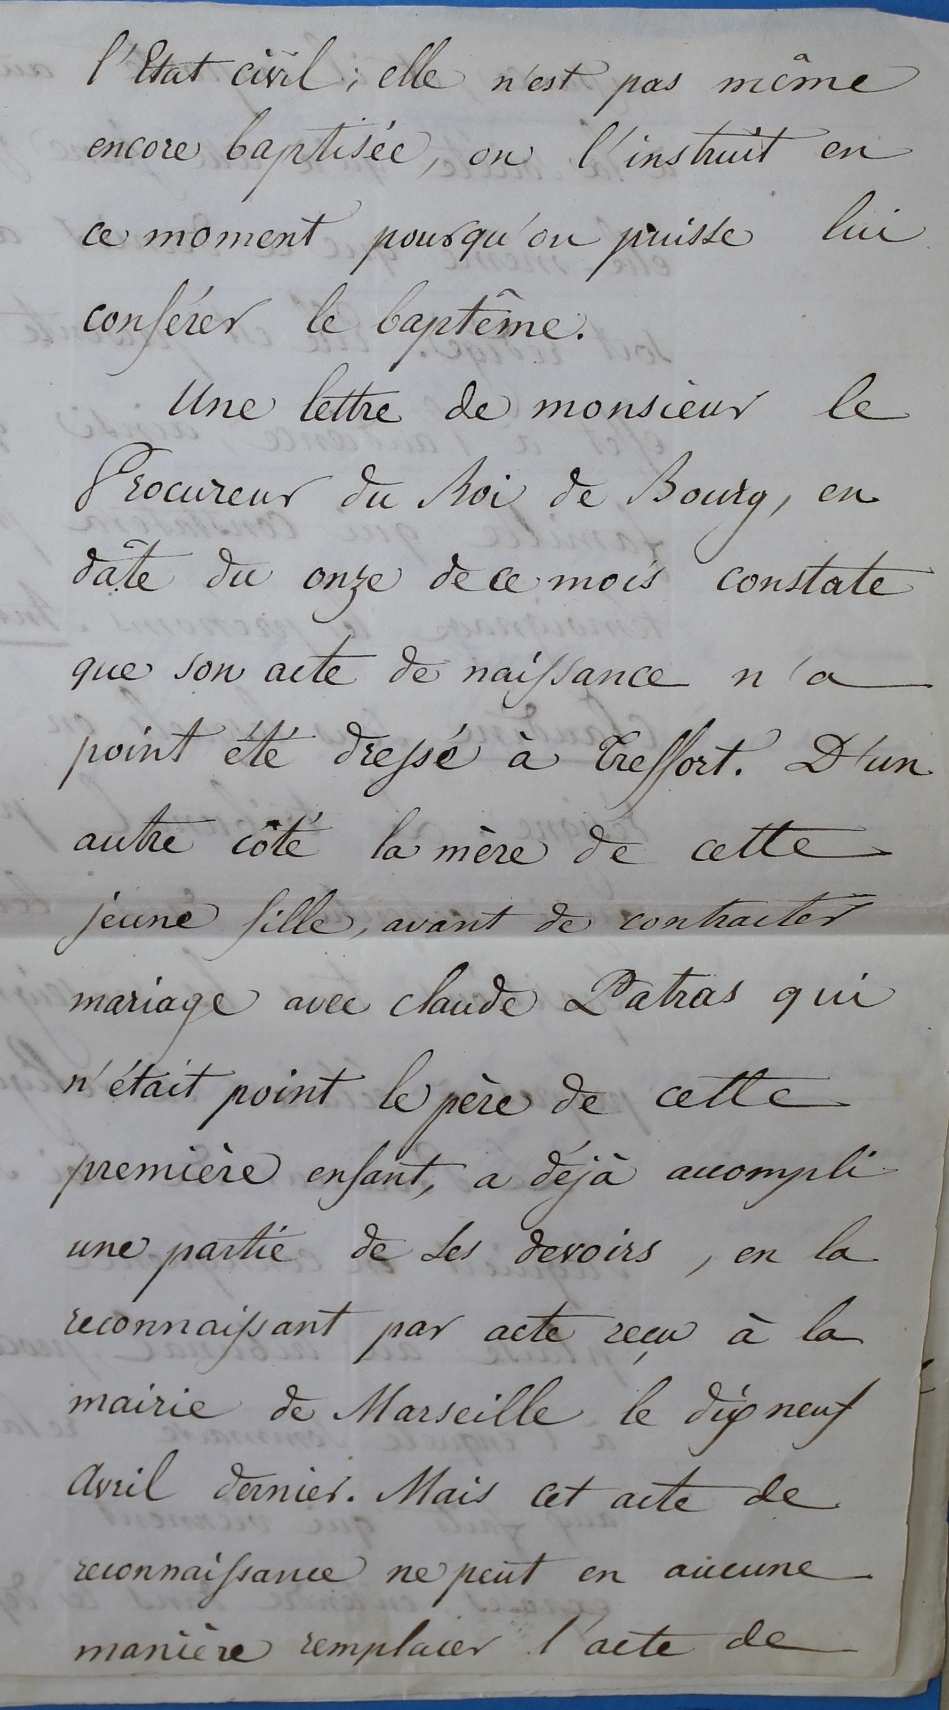 l'Etat civil; elle n'est pas même
encore baptisée, on l'instruit en
ce moment pourqu'on puisse lui
conférer le baptême.
Une lettre de monsieur le
Procureur du Roi de Bourg, en
dâte du onze de ce mois constate
que son acte de naissance n'a
point été dressé à Treffort. D'un
autre côté la mère de cette
jeune fille, avant de contracter
mariage avec claude Patras qui
n'était point le père de cette
première enfant, a déjà accompli
une partie de ses devoirs, en la
reconnaissant par acte reçu à la
mairie de Marseille le dix neuf
Avril dernier. Mais cet acte de
reconnaissance ne peut en aucune
manière remplacer l'acte de